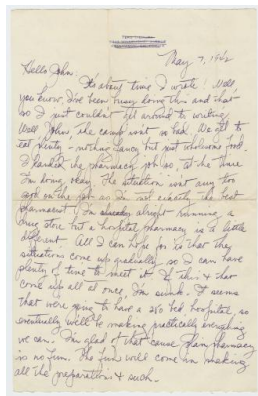 May 7, 1942
Hello John:
It's about time I wrote! Well
you know, I've been busy doing this and that
so I just couldn't get around to writing.
Well John, the camp isn't so bad. We get to
eat plenty - nothing fancy but just wholesome food.
I landed the pharmacy job so, at the time
I'm doing okay. The situation isn't any too
good on the job as I'm not exactly the best
pharmacist. I'm alright running a
drug store but a hospital pharmacy is a little
different. All I can hope for is that the
situations come up gradually so I can have
plenty of time to meet it. If this & that
come up all at once, I'm sunk. It seems
that we're going to have a 250 bed hospital, so
eventually we'll be making practically everything
we can. I'm glad of that cause plain pharmacy
is no fun. The fun will come in making
all the preparations & such.